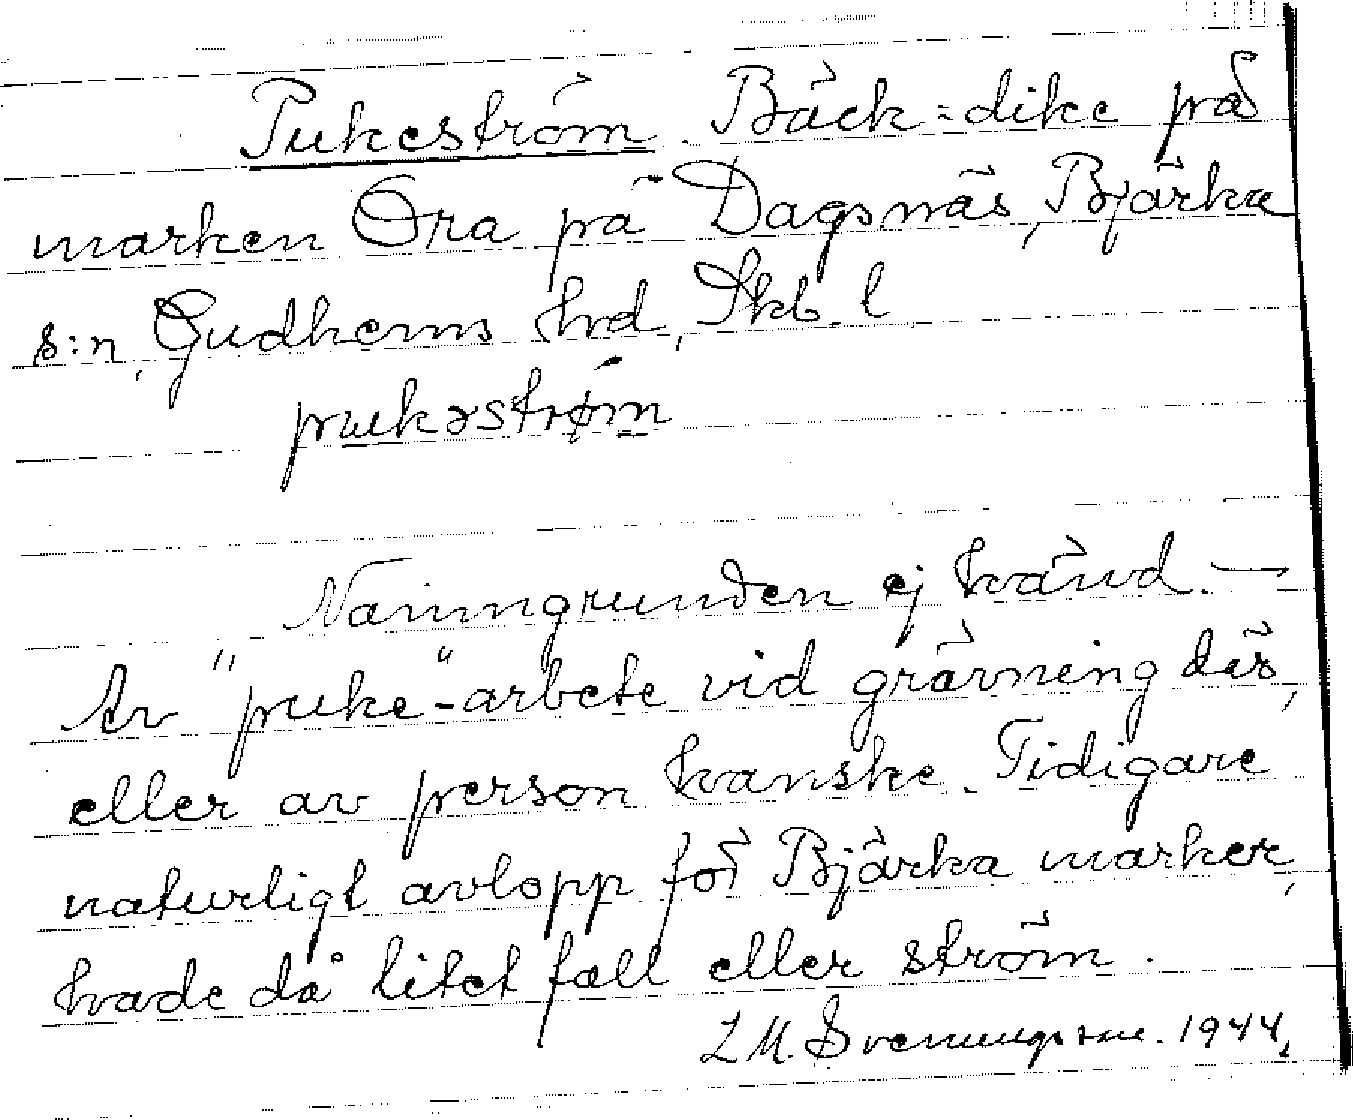 Pukeström. Bäck-dike på
marken Ora på Dagsnäs, Bjärka
s:n, Gudhems hrd, Skb. l
pukəstrøm
Namngrunden ej känd. —
Av "puke"-arbete vid grävning där,
eller av person kanske. Tidigare
naturligt avlopp för Bjärka marker,
hade då litet fall eller ström.
L M. Svenungsson. 1944.